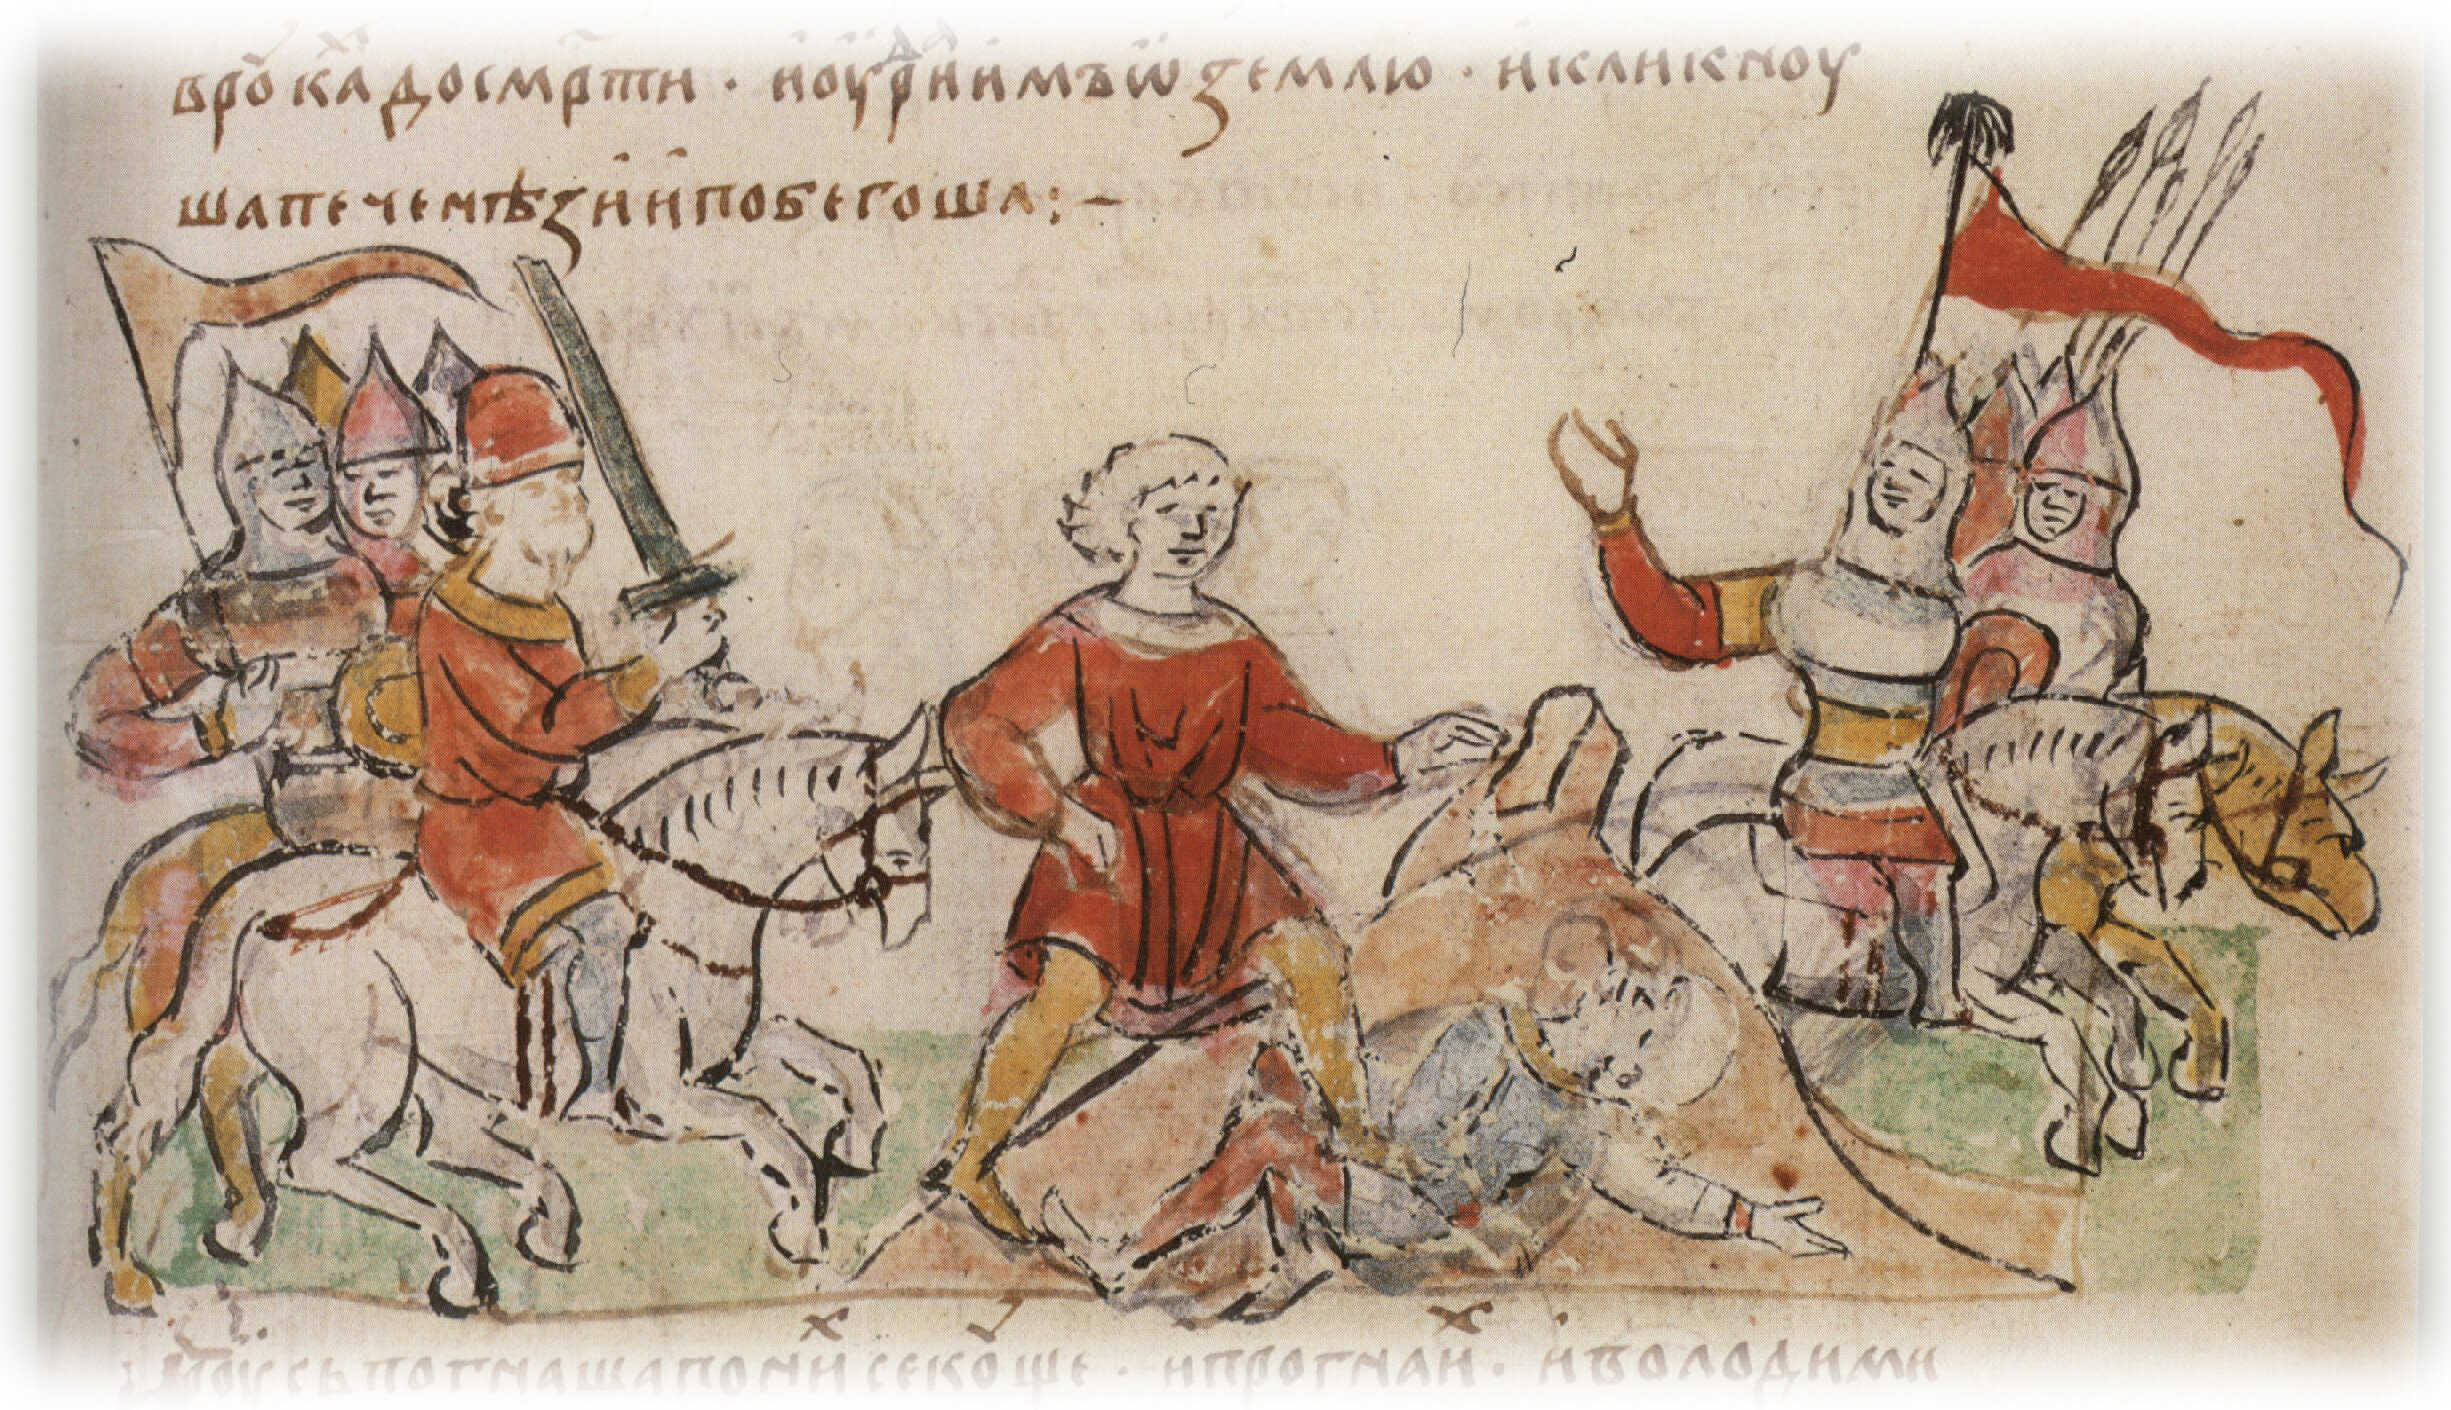 в рꙋ́ка до см҃рти · и оудари имъ ѡ землю · и кликноу
ша печенѣзи и побегоша :–
роусь погнаша по ни секоще · и прогнаи · и володими